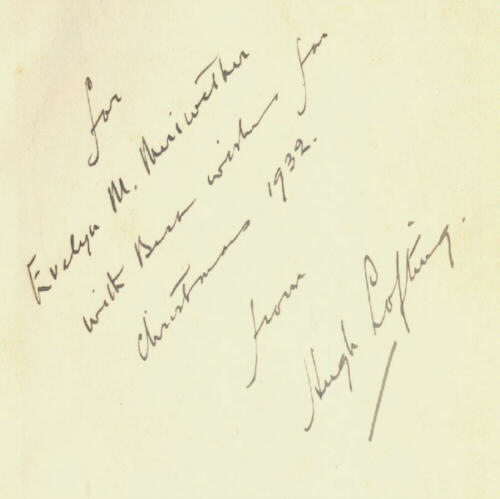 for
Evelyn M. Meriwether
with Best wishes for
Christmas 1932.
from
Hugh Lofting.